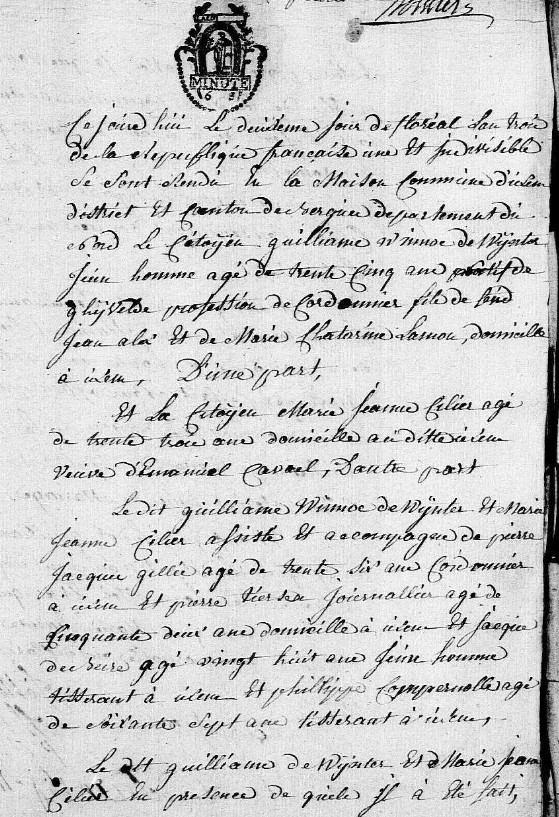 MINUTE
Ce jourd huii Le deuxieme jour de floréal Lan trois
de la Republique françaiste une Et Indivisible
Se Sont Rendu En La Maison Commune d'ulem
district Et Canton de Bergue departement du
Nord Le Citoyen guilliame Winnoc de Wÿnter
Jeun homme agé de trente Cinq ans natif de
ghÿvelde profession de Cordonner fils de feud
Jean alex Et de Marie Chatorine Lamou, domicille
à ulem, D'une part,
Et La Citoyen Marie Jeanne Cilier agé
de trente trois ans domicille au ditte ulem
veuve d'Emaniel Cavael, D'autre part
Le dit guilliame Winnoc de Wÿnter Et Marie
Jeanne Cilier assiste Et accompagne de pierre
Jacque gillie agé de trente six ans Cordonnier
à ulem Et pierre journallier agé de
Cinquante deux ans domicille à ulem Et Jacque
agé vingt huit ans Jeune homme
tisserant à ulem Et philippe Compernolle agé
de Soixante Sept ans tisserant à ulem,
Le dit guilliame de Wÿnter Et Marie Jeanne
Cilier En presence de quels Il à été fait,